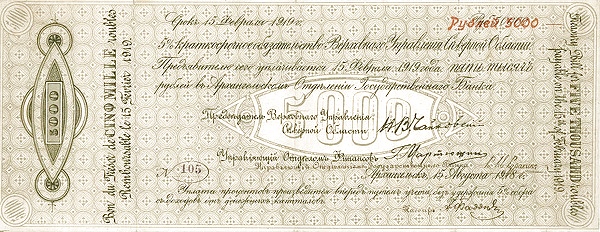 Bon du Trésor de CINQ MILLE roubles
Remboursable le 15 Février 1919.
5000
Срокъ 15 Февраля 1919 г.
Рублей 5000
5% Краткосрочное обязательство Верховнаго Управленія Сѣверной Области.
Предъявителю сего уплачивается 15 Февраля 1919 года пять тысячъ
рублей въ Архангельскомъ Отдѣленіи Государственнаго Банка.
5000
Предсѣдатель Верховнаго Управленія
Сѣверной Области
Управляющій Отдѣломъ Финансовъ
Управляющій Отдѣленіемъ Государственнаго Банка
№ 105
Архангельскъ, 15 Августа 1918 г.
Уплата процентовъ производится впередъ путемъ учета, безъ удержанія 5% сбора
съ доходовъ отъ денежныхъ капиталовъ.
Кассиръ
Treasury Bill for FIVE THOUSAND roubles
payable on the 15th of February 1919.